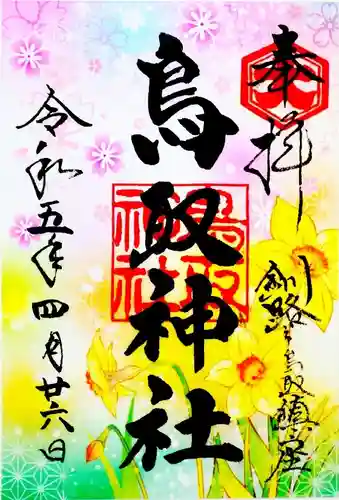 奉拝
釧路之鳥取鎮座
鳥取神社
鳥取
神社
令和五年四月廿六日